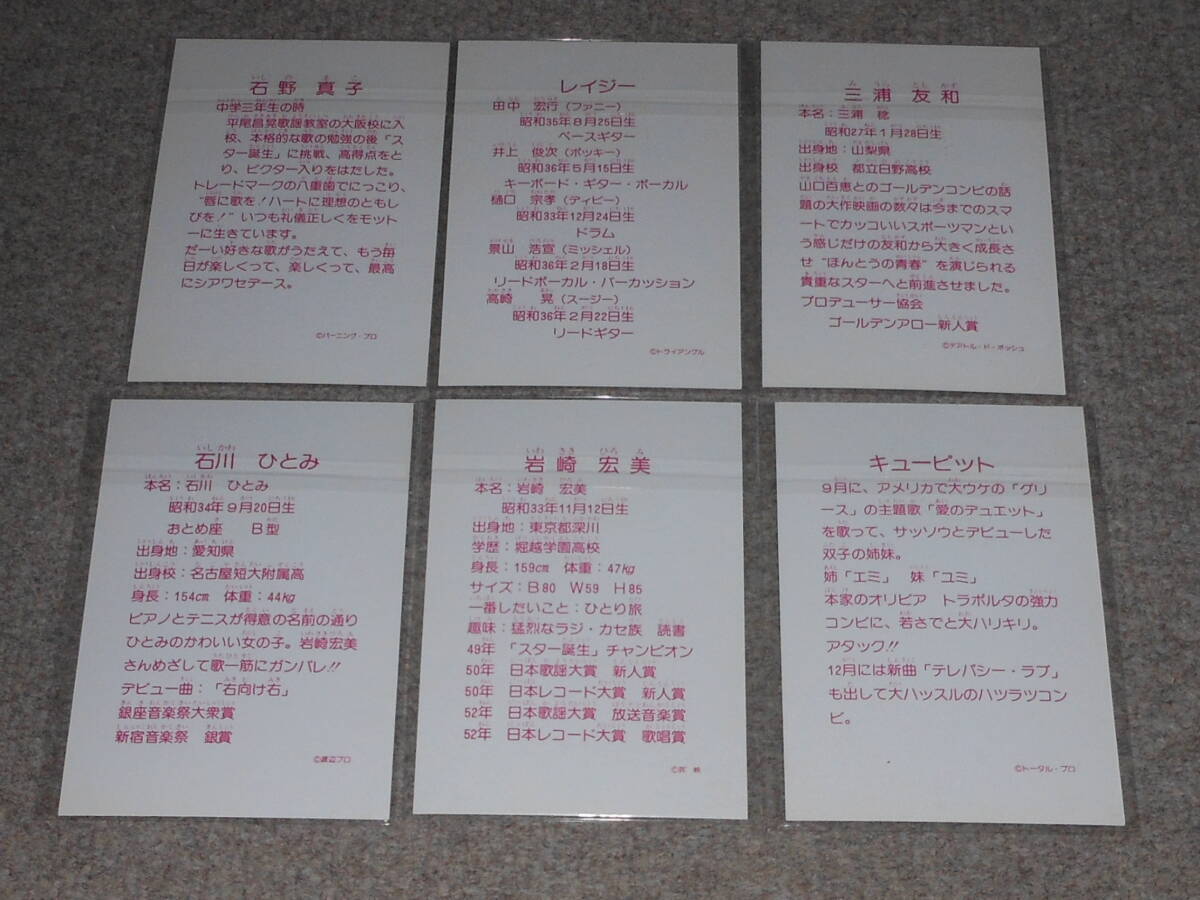 石野 真子
中学三年生の時
平尾昌晃歌謡教室の大阪校に入
校、本格的な歌の勉強の後「ス
ター誕生」に挑戦、高得点をと
り、ビクター入りをはたした。
トレードマークの八重歯でにっこり、
“唇に歌を！ハートに理想のともし
びを！”いつも礼儀正しくをモット
ーに生きています。
だーい好きな歌がうたえて、もう毎
日が楽しくって、楽しくって、最高
にシアワセデース。
©バーニング・プロ
レイジー
田中 宏行（ファニー）
昭和35年8月25日生
ベースギター
井上 俊次（ポッキー）
昭和36年5月15日生
キーボード・ギター・ボーカル
樋口 宗孝（デイビー）
昭和33年12月24日生
ドラム
景山 浩宣（ミッシェル）
昭和36年2月18日生
リードボーカル・パーカッション
高崎 晃（スージー）
昭和36年2月22日生
リードギター
©トライアングル
三浦 友和
本名：三浦 稔
昭和27年1月28日生
出身地：山梨県
出身校 都立日野高校
山口百恵とのゴールデンコンビの話
題の大作映画の数々は今までのスマ
ートでカッコいいスポーツマンとい
う感じだけの友和から大きく成長さ
せ“ほんとうの青春”を演じられる
貴重なスターへと前進させました。
プロデューサー協会
ゴールデンアロー新人賞
©テアトル・ド・ポッシュ
石川 ひとみ
本名：石川 ひとみ
昭和34年9月20日生
おとめ座 B型
出身地：愛知県
出身校：名古屋短大附属高
身長：154cm 体重：44kg
ピアノとテニスが得意の名前の通り
ひとみのかわいい女の子。岩崎宏美
さんめざして歌一筋にガンバレ!!
デビュー曲：「右向け右」
銀座音楽祭大衆賞
新宿音楽祭 銀賞
©渡辺プロ
岩崎 宏美
本名：岩崎 宏美
昭和33年11月12日生
出身地：東京都深川
学歴：堀越学園高校
身長：159cm 体重：47kg
サイズ：B80 W59 H85
一番したいこと：ひとり旅
趣味：猛烈なラジ・カセ族 読書
49年 「スター誕生」チャンピオン
50年 日本歌謡大賞 新人賞
50年 日本レコード大賞 新人賞
52年 日本歌謡大賞 放送音楽賞
52年 日本レコード大賞 歌唱賞
キューピット
9月に、アメリカで大ウケの「グリ
ース」の主題歌「愛のデュエット」
を歌って、サッソウとデビューした
双子の姉妹。
姉「エミ」 妹「ユミ」
本家のオリビア トラボルタの強力
コンビに、若さでと大ハリキリ。
アタック!!
12月には新曲「テレパシー・ラブ」
も出して大ハッスルのハツラツコン
ビ。
©トータル・プロ